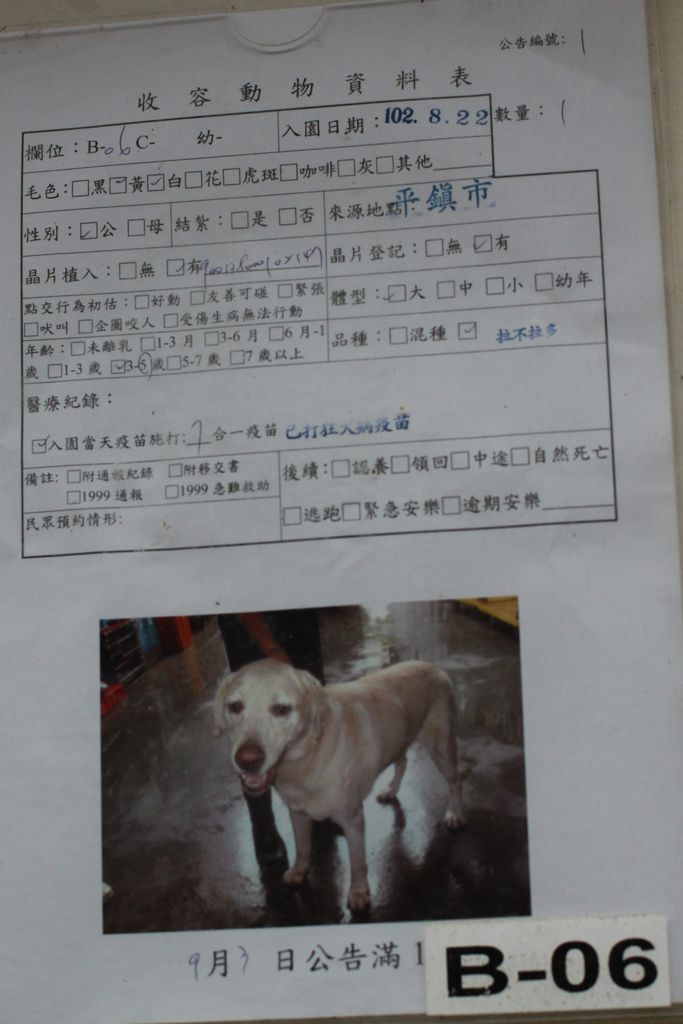 公告編號: 1
收容動物資料表
欄位：B-06 C- 幼- 入園日期：102.8.22 數量：1
毛色：□黑☑黃☑白□花□虎斑□咖啡□灰□其他
性別：☑公 □母 結紮：□是 □否 來源地點：平鎮市
晶片植入：□無 ☑有 晶片登記：□無 ☑有
點交行為初估：□好動 □友善可碰 □緊張
□吠叫 □企圖咬人 □受傷生病無法行動
體型：☑大 □中 □小 □幼年
年齡：□未離乳 □1-3 月 □3-6 月 □6 月-1
歲 □1-3 歲 ☑3-5 歲□5-7 歲 □7 歲以上
品種：□混種 ☑ 拉不拉多
醫療紀錄：
☑入園當天疫苗施打: 合一疫苗 已打狂犬病疫苗
備註：□附通報紀錄 □附移交書
□1999 通報 □1999 急難救助
後續：□認養□領回□中途□自然死亡
□逃跑□緊急安樂□逾期安樂
民眾預約情形:
9月3日公告滿1
B-06